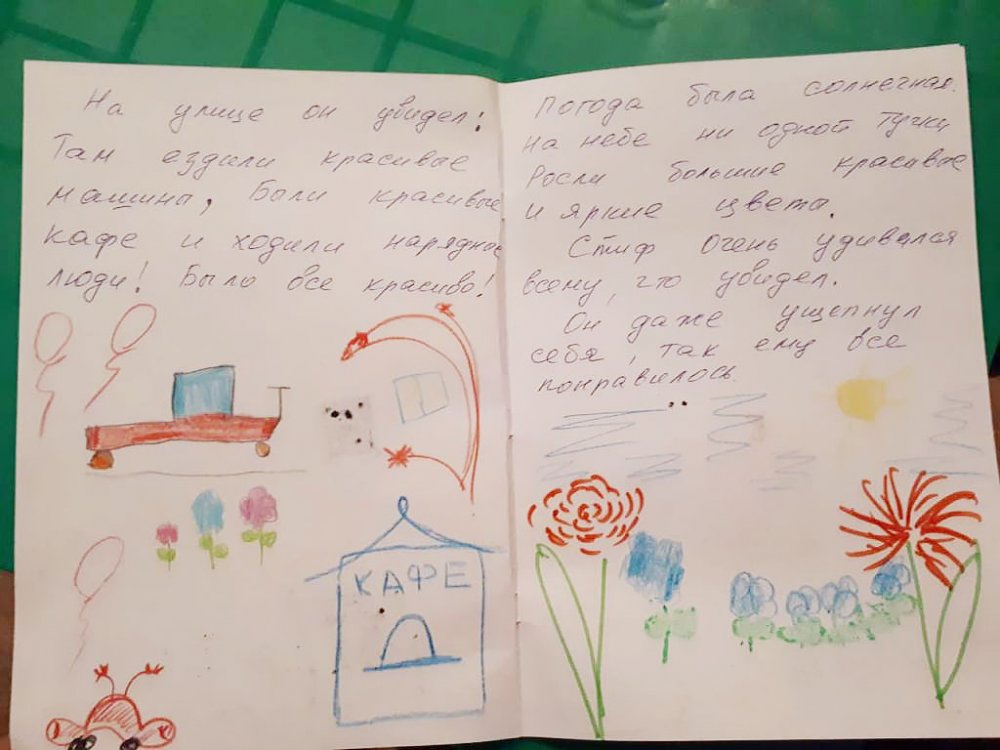 На улице он увидел:
Там ездили красивые
машины, Были красивые
кафе и ходили нарядное
люди! Было все красиво!
КАФЕ
Погода была солнечная.
на небе ни одной тучки
Росли большие красивые
и яркие цветы.
Стиф очень удивлялся
всему, что увидел.
Он даже ущепнул
себя, так ему все
понравилось.